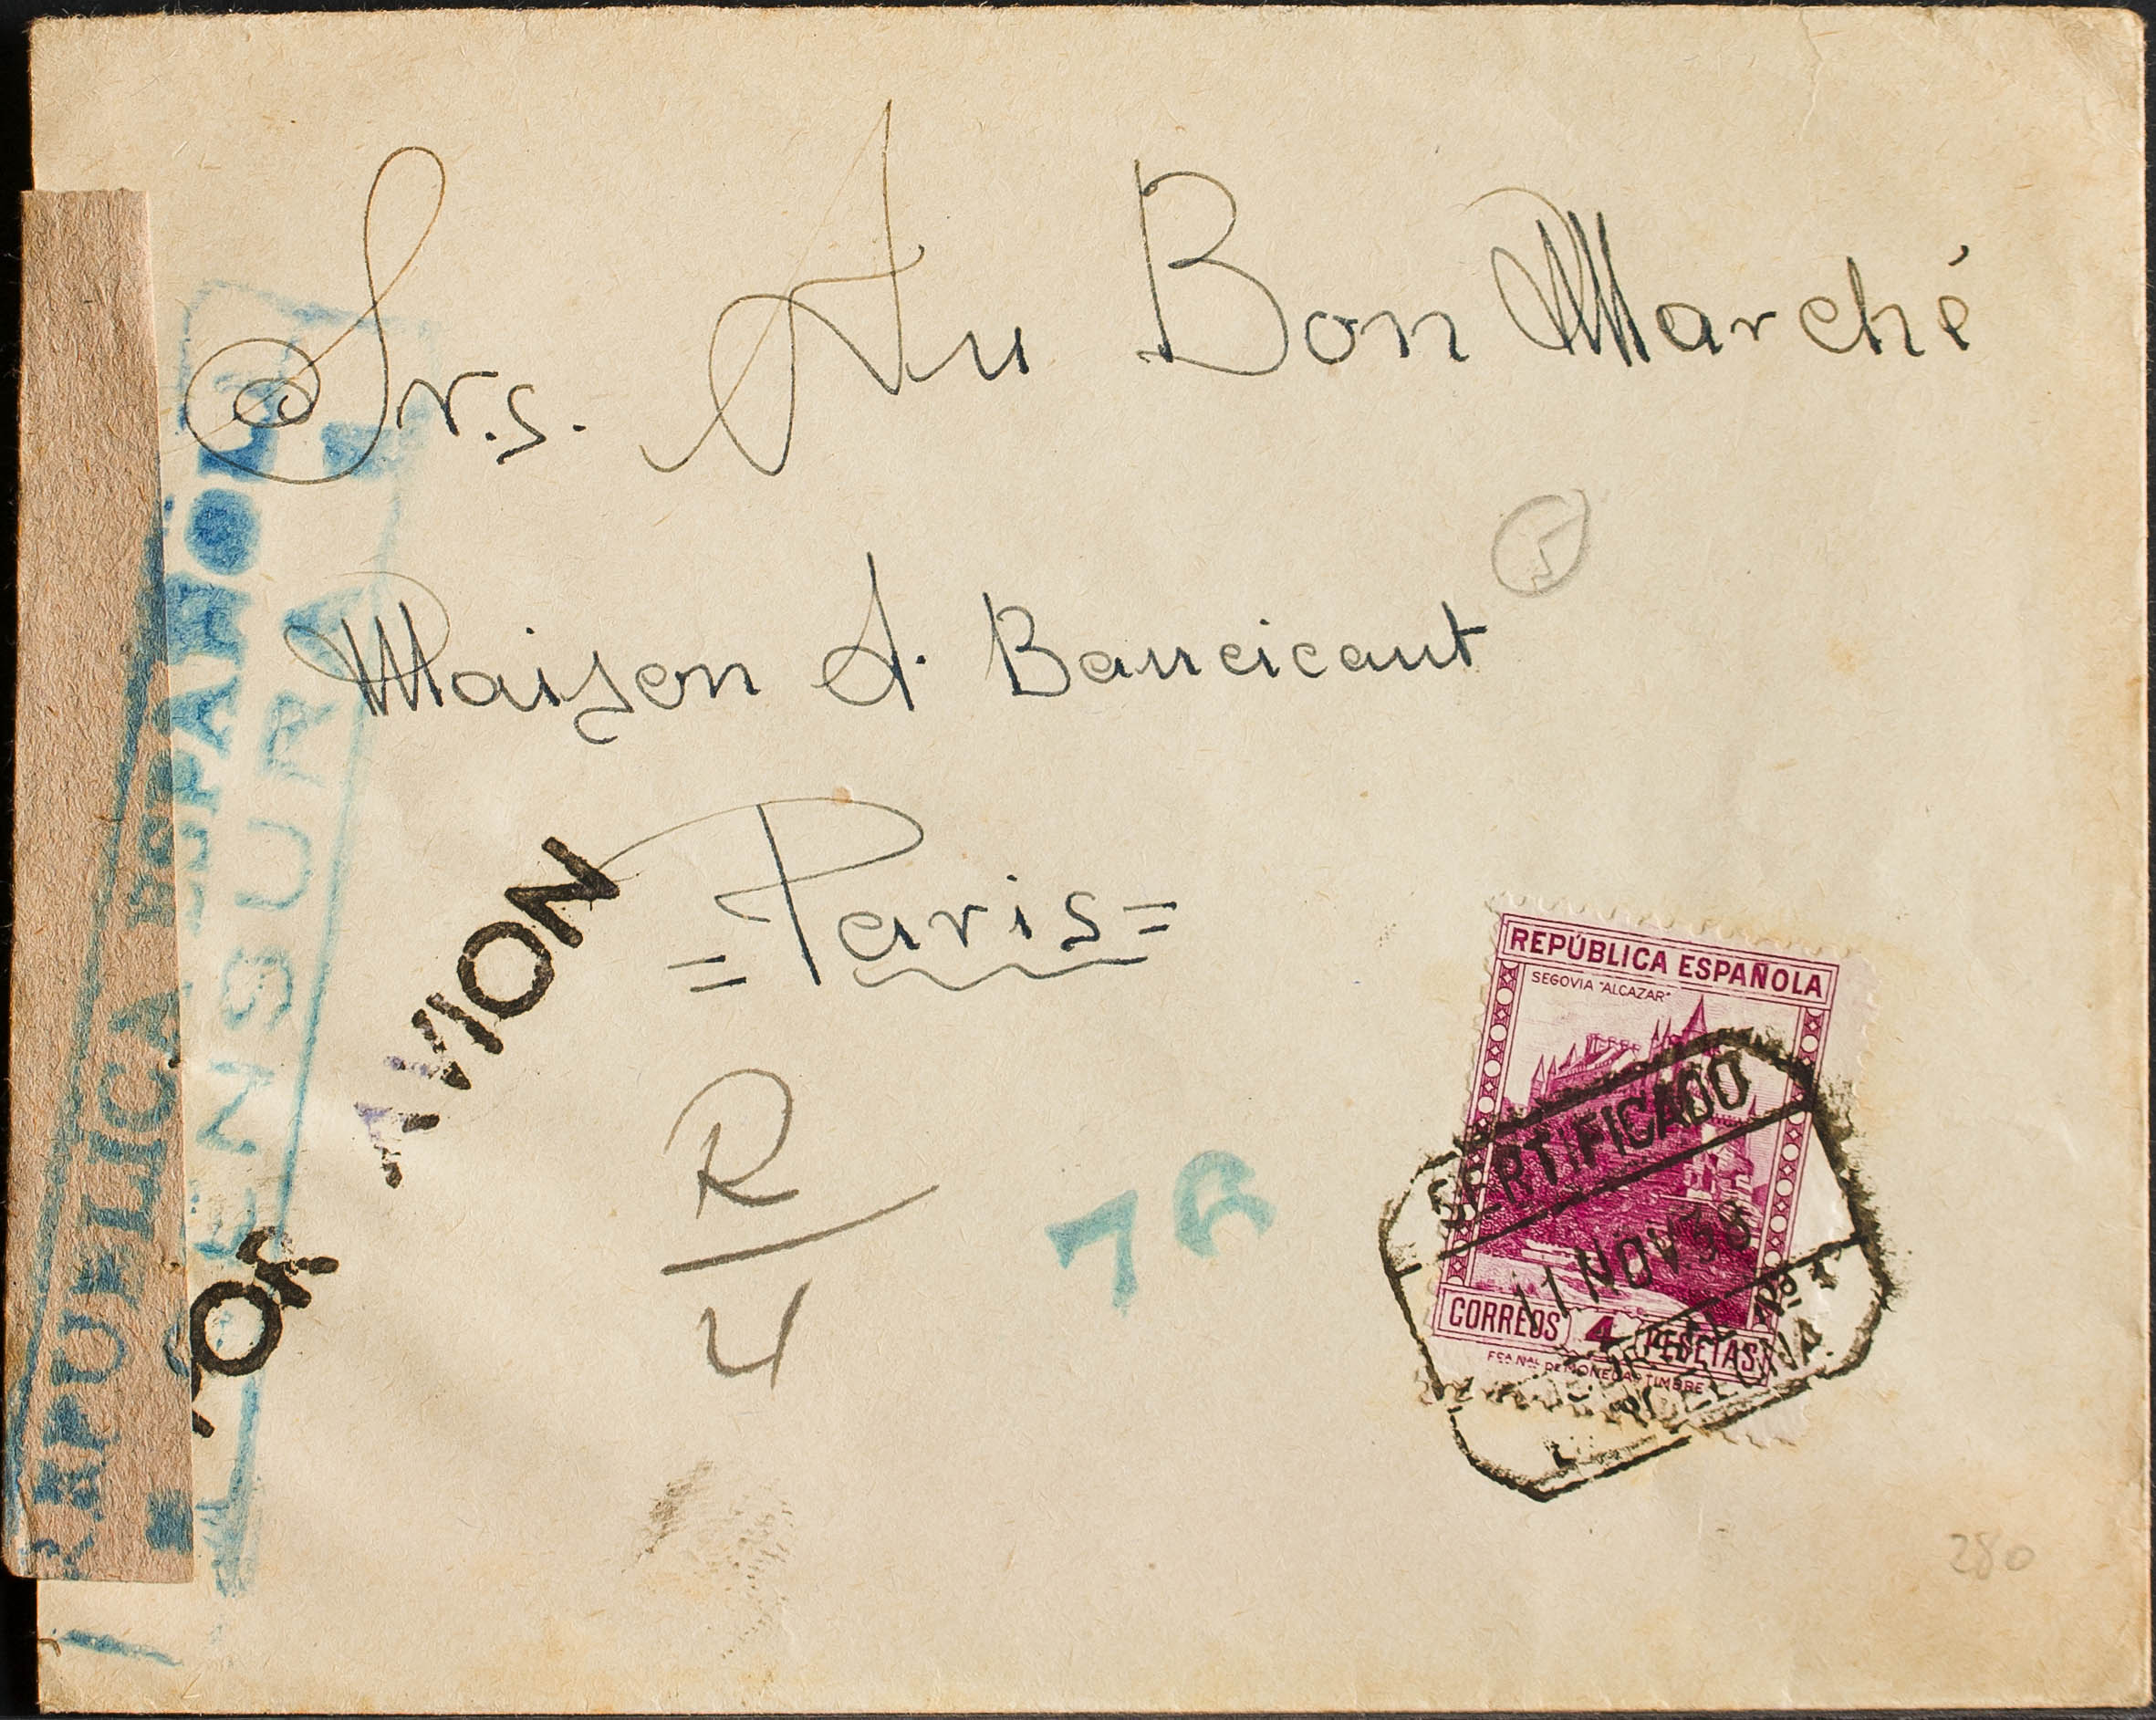 Srs. Au Bon Marché
5
Maison A. Baucicaut
= Paris =
POR AVION
REPUBLICA ESPAÑOLA
CENSURA
R
4
7 R
REPÚBLICA ESPAÑOLA
SEGOVIA "ALCAZAR"
CORREOS 4 PESETAS
FCA. NAL. DE MONEDA Y TIMBRE
CERTIFICADO
11 NOV. 38
BARCELONA
280